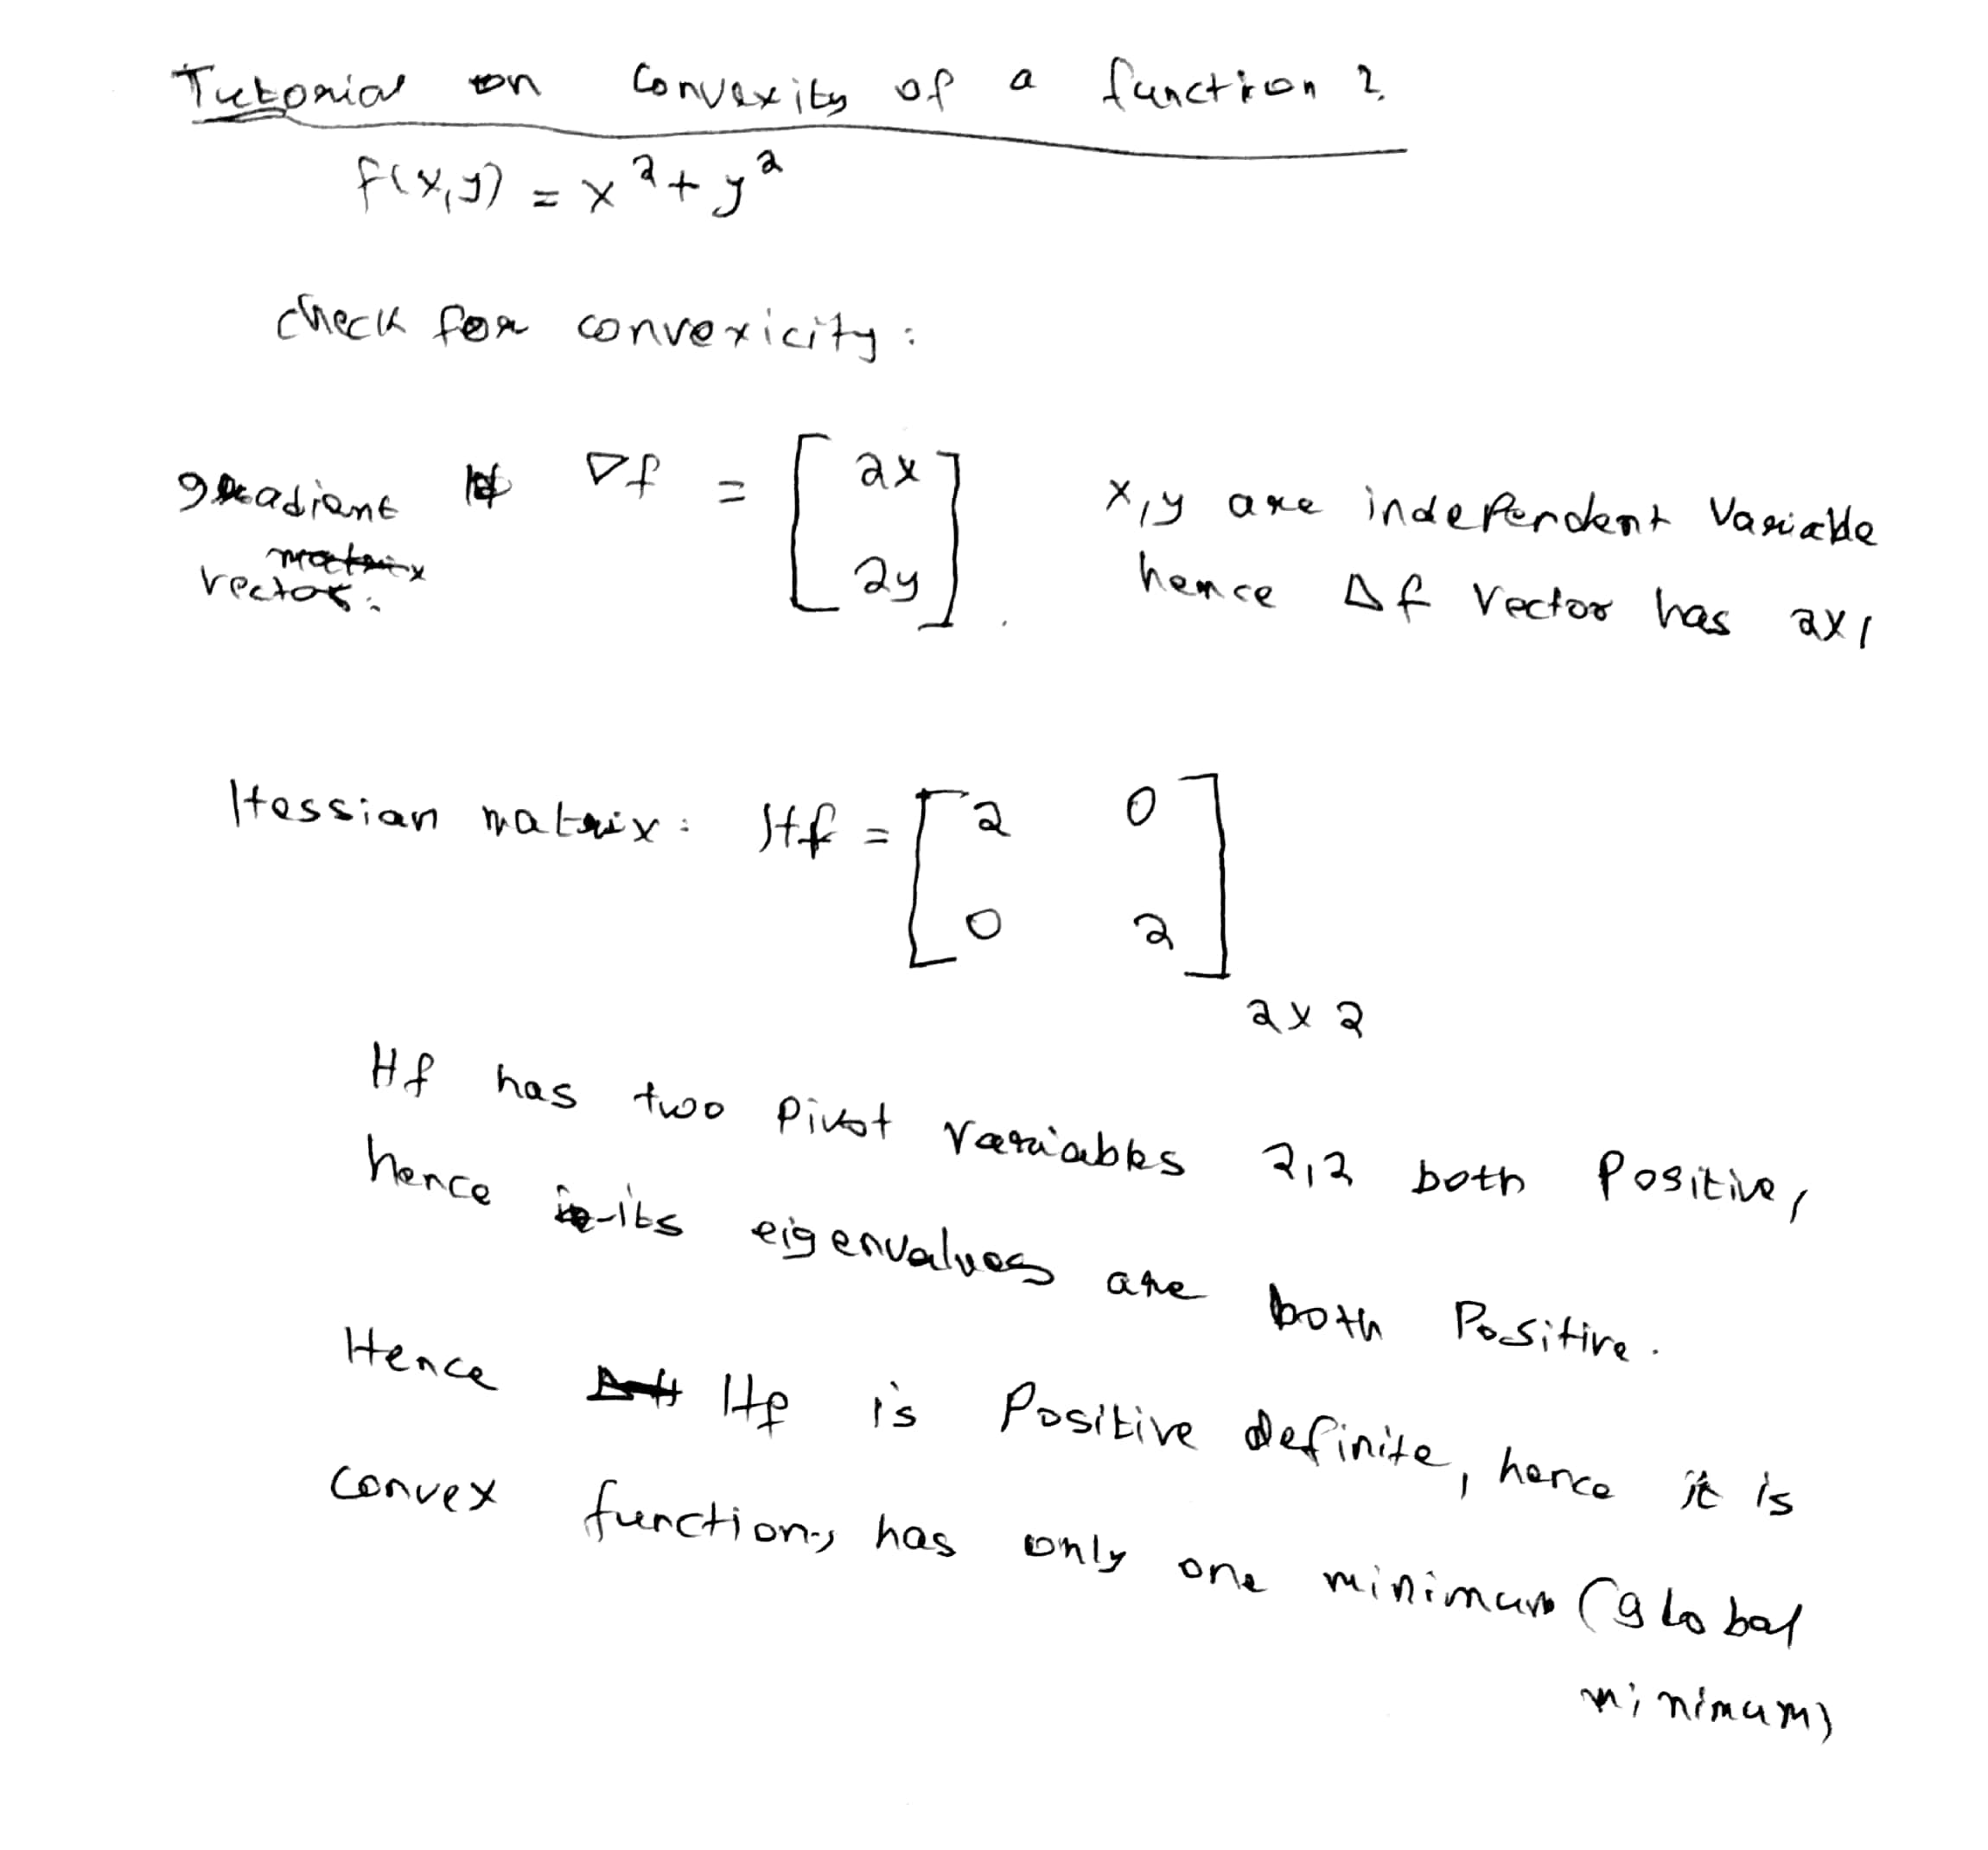 Tutorial on Convexity of a function?
f(x,y) = x² + y²
check for convexicity:
gradient ∇f = [ 2x
2y ]
x,y are independent Variable
matrix
vector:
hence Δf Vector has 2x1
Hessian matrix: Hf = [ 2 0
0 2 ]
2x2
Hf has two pivot variables 2,2 both Positive,
hence its eigenvalues are both Positive.
Hence Hf is Positive definite, hence it is
convex function, has only one minimum (global
minimum)